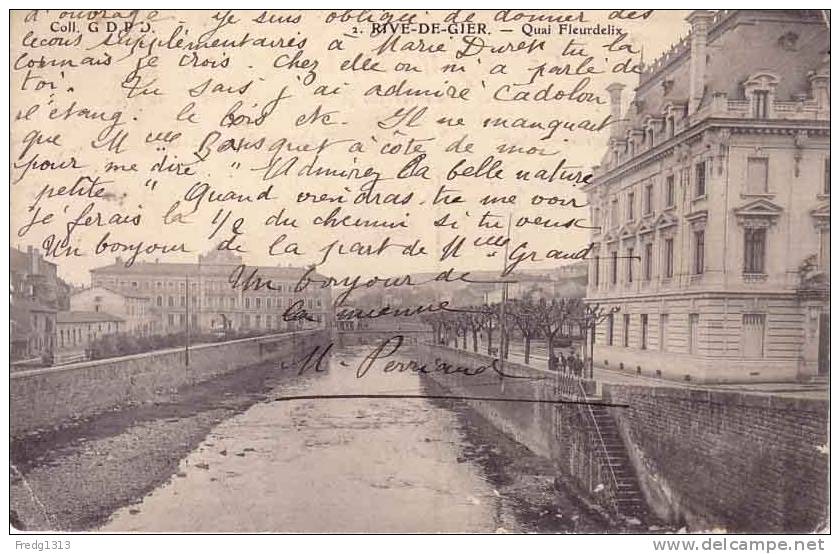 d'ouvrage. Je suis obligée de donner des
Coll. G D P D. 2. RIVE-DE-GIER. — Quai Fleurdelix
leçons supplémentaires à Marie Duret tu la
connais je crois. Chez elle on m'a parlé de
toi. Tu sais j'ai admiré Cadolon
l'étang. le bois etc. Il ne manquait
que Mlle Bousquet à côté de moi
pour me dire "Admirez la belle nature
petite" Quand viendras-tu me voir
Je ferais la 1/2 du chemin si tu veux
Un bonjour de la part de Mlle Grand
Un bonjour de
la mienne
M. Perriaud
Fredg1313
www.delcampe.net